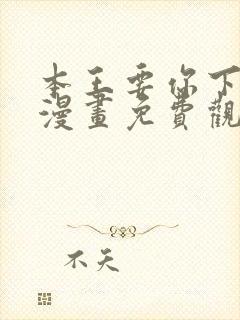 本王要你下
漫畫免費觀
不天